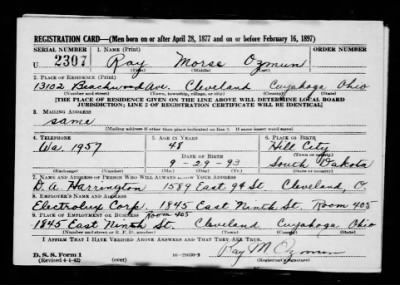 REGISTRATION CARD—(Men born on or after April 28, 1877 and on or before February 16, 1897)
SERIAL NUMBER 1. NAME (Print) ORDER NUMBER
U 2307 Ray Morse Ozmun
(First) (Middle) (Last)
2. PLACE OF RESIDENCE (Print)
13102 Beachwood Ave. Cleveland Cuyahoga Ohio
(Number and street) (Town, township, village, or city) (County) (State)
[THE PLACE OF RESIDENCE GIVEN ON THE LINE ABOVE WILL DETERMINE LOCAL BOARD
JURISDICTION; LINE 2 OF REGISTRATION CERTIFICATE WILL BE IDENTICAL]
3. MAILING ADDRESS
same
[Mailing address if other than place indicated on line 2. If same insert word same]
4. TELEPHONE 5. AGE IN YEARS 6. PLACE OF BIRTH
Wa. 1957 48 Hill City
DATE OF BIRTH (Town or county)
9-29-93 South Dakota
(Mo.) (Day) (Yr.) (State or country)
7. NAME AND ADDRESS OF PERSON WHO WILL ALWAYS KNOW YOUR ADDRESS
D. A. Harrington 1589 East 94 St. Cleveland, O.
8. EMPLOYER'S NAME AND ADDRESS
Electrolux Corp. 1845 East Ninth St. Room 405
9. PLACE OF EMPLOYMENT OR BUSINESS Room 405
1845 East Ninth St. Cleveland Cuyahoga, Ohio
(Number and street or R. F. D. number) (Town) (County) (State)
I AFFIRM THAT I HAVE VERIFIED ABOVE ANSWERS AND THAT THEY ARE TRUE.
D. S. S. Form 1 Ray M Ozmun
(Revised 4-1-42) (over) (Registrant's signature)